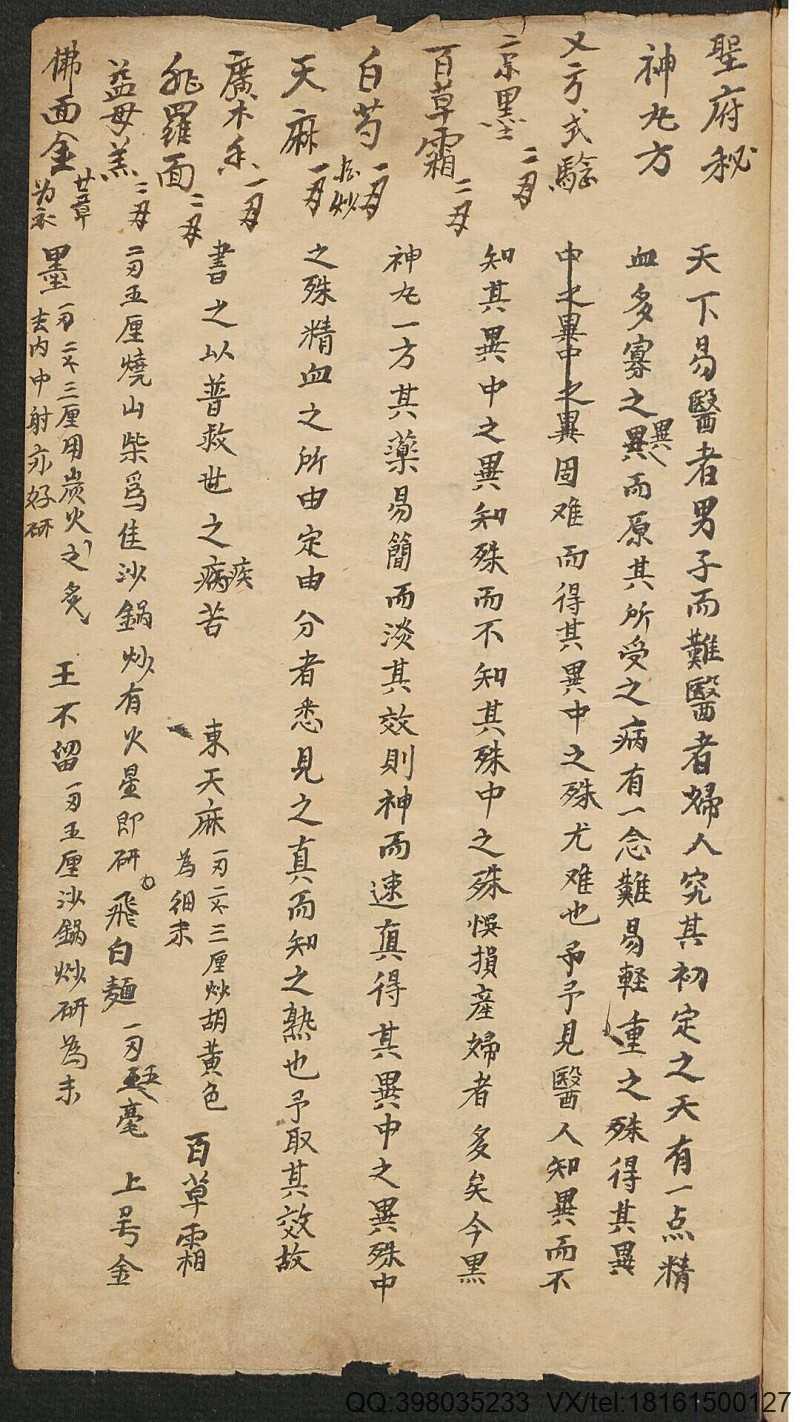 聖府秘
神丸方
又方式驗
二京墨 二刄
百草霜 二刄
白芍 一刄 炒
天麻 一刄
廣木香 一刄
飛羅面 二刄
益母羔 二刄
佛面金 廿章 為衣
天下易醫者男子而難醫者婦人究其初定之天有一点精
血多寡之異異而原其所受之病有一念難易軽重之殊得其異
中之異中之異固难而得其異中之殊尤难也予見醫人知異而不
知其異中之異知殊而不知其殊中之殊悞損産婦者多矣今黒
神丸一方其藥易簡而淡其效則神而速真得其異中之異殊中
之殊精血之所由定由分者悉見之真而知之熟也予取其效故
書之以普救世之病疾苦 東天麻 一刄二分三厘炒胡黄色 為细末 百草霜
二刄五厘燒山柴爲佳沙鍋炒有火星即研 飛白麵 一刄五毫 上号金
墨 一刄二分三厘用炭火之炙 去内中射亦好研 王不留 一刄五厘沙鍋炒研為末
QQ:398035233 VX/tel:18161500127